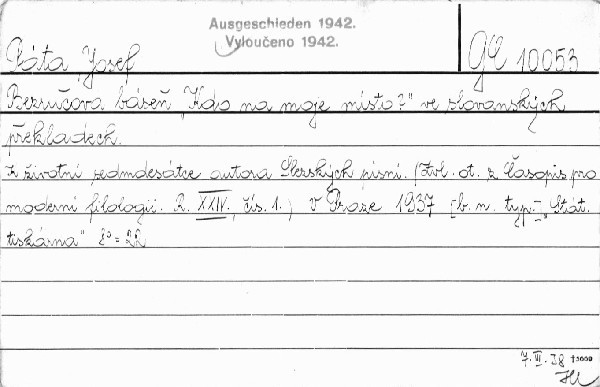 Ausgeschieden 1942.
Vyloučeno 1942.
Páta Josef
GC 10053
Bezručova báseň "Kdo na moje místo?" ve slovanských
překladech.
K životní sedmdesátce autora Slezských písní. (Zvl. ot. z Časopis pro
moderní filologii. R. XXIV., čís. 1.) V Praze 1937 [b. n. typ.] „Stát.
tiskárna" 8° = 22
7. VI. 38 †3000